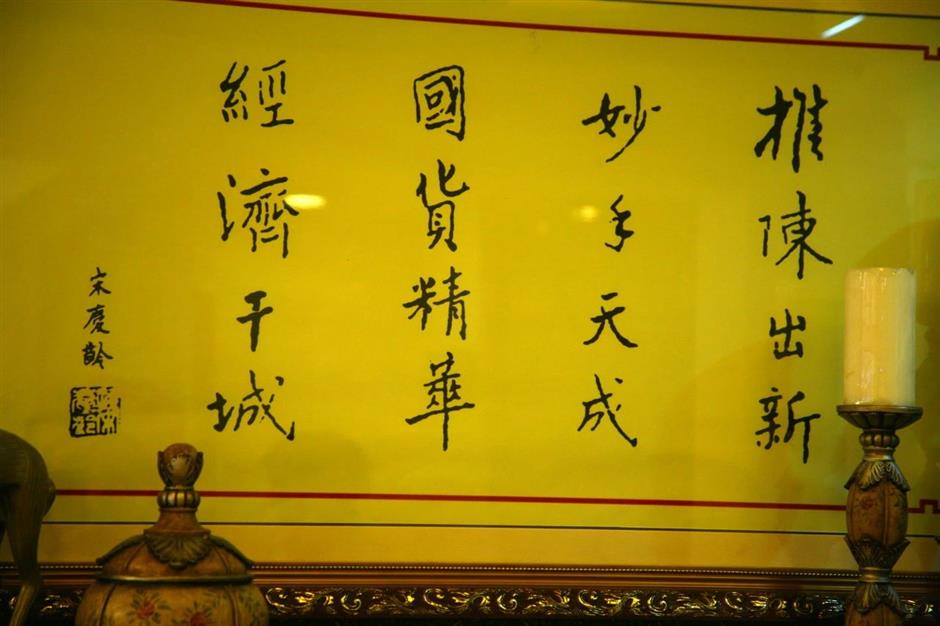 推陳出新
妙手天成
國貨精華
經濟干城
宋慶齡